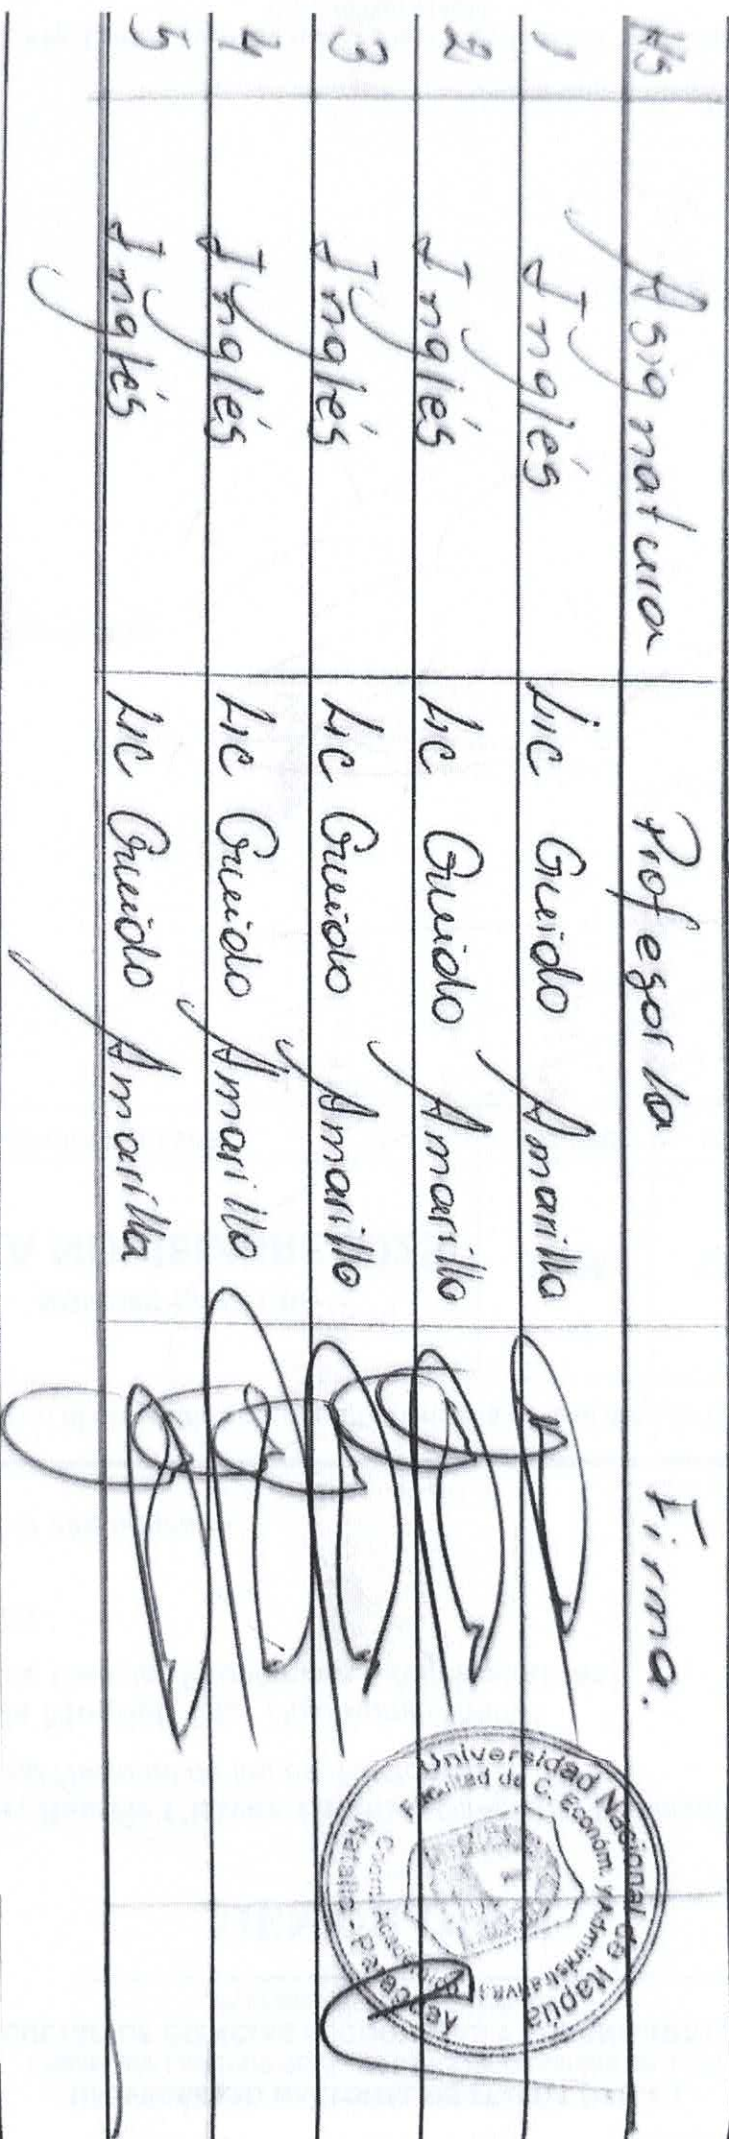 Hs Asignatura Profesor/a Firma.
1 Inglés Lic Guido Amarilla
2 Inglés Lic Guido Amarilla
3 Inglés Lic Guido Amarilla
4 Inglés Lic Guido Amarilla
5 Inglés Lic Guido Amarilla
Universidad Nacional de Itapúa
Facultad de C. Económ. y Administrativas
Natalio - Paraguay